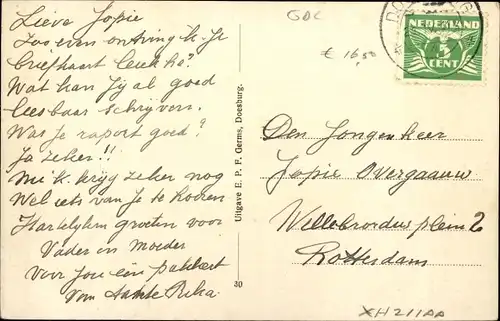 Lieve Jopie
Zoo even ontving ik Je
briefkaart leuk hé?
Wat kan Jij al goed
leesbaar schrijven.
Was Je raport goed?
Ja zeker!!
ik krijg zeker nog
Wel iets van Je te hooren
Hartelyken groeten voor
Vader en Moeder
Voor Jou één pakkert
Van tante Rika.
GDL
€ 16,50
NEDERLAND
5
CENT
Den Jongenheer
Jopie Overgaauw
Willebrordusplein 2
Rotterdam
Uitgave E. P. F. Germs, Doesburg.
30
XH211AA